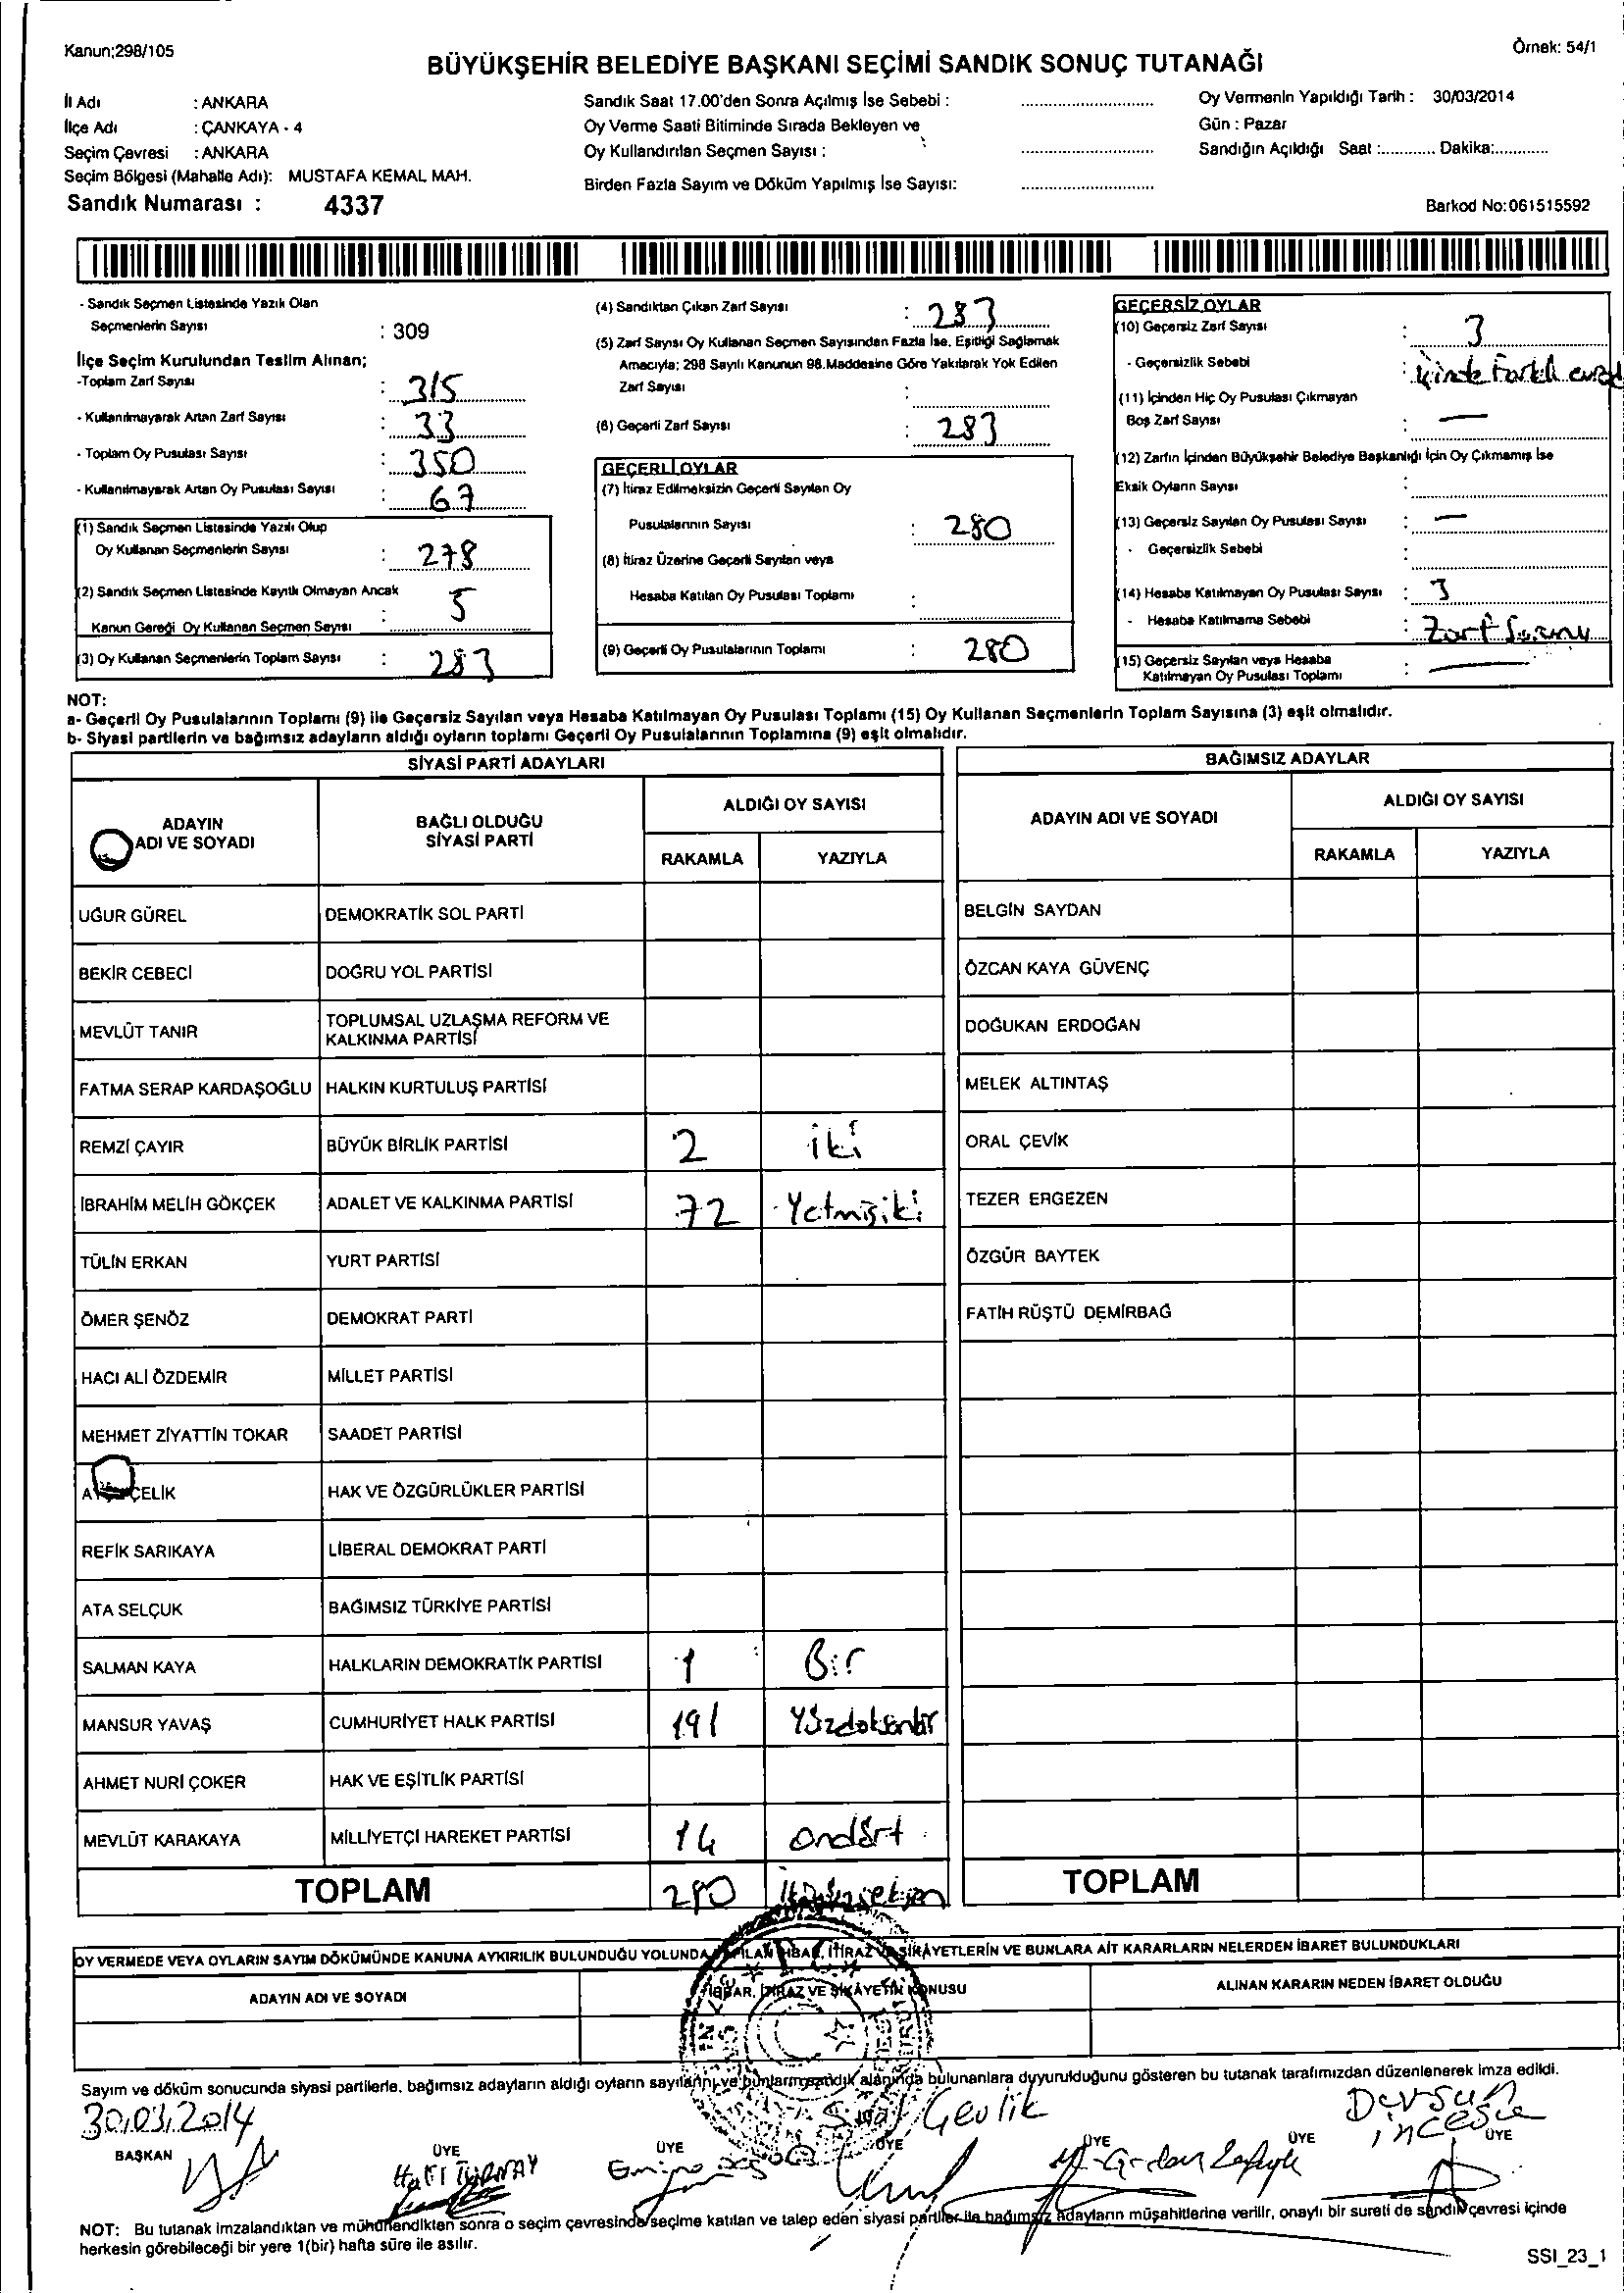 Kanun;298/105
Örnek: 54/1
BÜYÜKŞEHİR BELEDİYE BAŞKANI SEÇİMİ SANDIK SONUÇ TUTANAĞI
İl Adı : ANKARA
İlçe Adı : ÇANKAYA - 4
Seçim Çevresi : ANKARA
Seçim Bölgesi (Mahalle Adı): MUSTAFA KEMAL MAH.
Sandık Numarası : 4337
Sandık Saat 17.00'den Sonra Açılmış İse Sebebi :
Oy Verme Saati Bitiminde Sırada Bekleyen ve
Oy Kullandırılan Seçmen Sayısı :
Birden Fazla Sayım ve Döküm Yapılmış İse Sayısı:
Oy Vermenin Yapıldığı Tarih : 30/03/2014
Gün : Pazar
Sandığın Açıldığı Saat :............ Dakika:............
Barkod No:061515592
- Sandık Seçmen Listesinde Yazılı Olan
Seçmenlerin Sayısı : 309
İlçe Seçim Kurulundan Teslim Alınan;
-Toplam Zarf Sayısı : 315
- Kullanılmayarak Artan Zarf Sayısı : 33
- Toplam Oy Pusulası Sayısı : 350
- Kullanılmayarak Artan Oy Pusulası Sayısı : 67
(1) Sandık Seçmen Listesinde Yazılı Olup
Oy Kullanan Seçmenlerin Sayısı : 278
(2) Sandık Seçmen Listesinde Kayıtlı Olmayan Ancak
Kanun Gereği Oy Kullanan Seçmen Sayısı : 5
(3) Oy Kullanan Seçmenlerin Toplam Sayısı : 283
(4) Sandıktan Çıkan Zarf Sayısı : 283
(5) Zarf Sayısı Oy Kullanan Seçmen Sayısından Fazla İse, Eşitliği Sağlamak
Amacıyla; 298 Sayılı Kanunun 98.Maddesine Göre Yakılarak Yok Edilen
Zarf Sayısı :
(6) Geçerli Zarf Sayısı : 283
GEÇERLİ OYLAR
(7) İtiraz Edilmeksizin Geçerli Sayılan Oy
Pusulalarının Sayısı : 280
(8) İtiraz Üzerine Geçerli Sayılan veya
Hesaba Katılan Oy Pusulası Toplamı :
(9) Geçerli Oy Pusulalarının Toplamı : 280
GEÇERSİZ OYLAR
(10) Geçersiz Zarf Sayısı : 3
- Geçersizlik Sebebi : içinde Farklı
(11) İçinden Hiç Oy Pusulası Çıkmayan
Boş Zarf Sayısı : —
(12) Zarfın İçinden Büyükşehir Belediye Başkanlığı İçin Oy Çıkmamış İse
Eksik Oyların Sayısı :
(13) Geçersiz Sayılan Oy Pusulası Sayısı : —
- Geçersizlik Sebebi :
(14) Hesaba Katılmayan Oy Pusulası Sayısı : 3
- Hesaba Katılmama Sebebi : Zarf
(15) Geçersiz Sayılan veya Hesaba : —
Katılmayan Oy Pusulası Toplamı
NOT:
a- Geçerli Oy Pusulalarının Toplamı (9) ile Geçersiz Sayılan veya Hesaba Katılmayan Oy Pusulası Toplamı (15) Oy Kullanan Seçmenlerin Toplam Sayısına (3) eşit olmalıdır.
b- Siyasi partilerin ve bağımsız adayların aldığı oyların toplamı Geçerli Oy Pusulalarının Toplamına (9) eşit olmalıdır.
SİYASİ PARTİ ADAYLARI
ADAYIN
ADI VE SOYADI
BAĞLI OLDUĞU
SİYASİ PARTİ
ALDIĞI OY SAYISI
RAKAMLA YAZIYLA
UĞUR GÜREL DEMOKRATİK SOL PARTİ
BEKİR CEBECİ DOĞRU YOL PARTİSİ
MEVLÜT TANIR TOPLUMSAL UZLAŞMA REFORM VE
KALKINMA PARTİSİ
FATMA SERAP KARDAŞOĞLU HALKIN KURTULUŞ PARTİSİ
REMZİ ÇAYIR BÜYÜK BİRLİK PARTİSİ 2 iki
İBRAHİM MELİH GÖKÇEK ADALET VE KALKINMA PARTİSİ 72 Yetmişiki
TÜLİN ERKAN YURT PARTİSİ
ÖMER ŞENÖZ DEMOKRAT PARTİ
HACI ALİ ÖZDEMİR MİLLET PARTİSİ
MEHMET ZİYATTİN TOKAR SAADET PARTİSİ
ÇELİK HAK VE ÖZGÜRLÜKLER PARTİSİ
REFİK SARIKAYA LİBERAL DEMOKRAT PARTİ
ATA SELÇUK BAĞIMSIZ TÜRKİYE PARTİSİ
SALMAN KAYA HALKLARIN DEMOKRATİK PARTİSİ 1 Bir
MANSUR YAVAŞ CUMHURİYET HALK PARTİSİ 191 Yüzdoksanbir
AHMET NURİ ÇOKER HAK VE EŞİTLİK PARTİSİ
MEVLÜT KARAKAYA MİLLİYETÇİ HAREKET PARTİSİ 14 ondört
TOPLAM 280 ikiyüzseksen
BAĞIMSIZ ADAYLAR
ADAYIN ADI VE SOYADI
ALDIĞI OY SAYISI
RAKAMLA YAZIYLA
BELGİN SAYDAN
ÖZCAN KAYA GÜVENÇ
DOĞUKAN ERDOĞAN
MELEK ALTINTAŞ
ORAL ÇEVİK
TEZER ERGEZEN
ÖZGÜR BAYTEK
FATİH RÜŞTÜ DEMİRBAĞ
TOPLAM
OY VERMEDE VEYA OYLARIN SAYIM DÖKÜMÜNDE KANUNA AYKIRILIK BULUNDUĞU YOLUNDA YAPILAN İHBAR, İTİRAZ VE ŞİKAYETLERİN VE BUNLARA AİT KARARLARIN NELERDEN İBARET BULUNDUKLARI
ADAYIN ADI VE SOYADI
İHBAR, İTİRAZ VE ŞİKAYETİN KONUSU
ALINAN KARARIN NEDEN İBARET OLDUĞU
Sayım ve döküm sonucunda siyasi partilerle, bağımsız adayların aldığı oyların sayılarını ve bunların sandık alanında bulunanlara duyurulduğunu gösteren bu tutanak tarafımızdan düzenlenerek imza edildi.
30.03.2014
Dursun
incesu
BAŞKAN ÜYE ÜYE ÜYE ÜYE ÜYE ÜYE
NOT: Bu tutanak imzalandıktan ve mühürlendikten sonra o seçim çevresinde seçime katılan ve talep eden siyasi partiler ile bağımsız adayların müşahitlerine verilir, onaylı bir sureti de sandık çevresi içinde
herkesin görebileceği bir yere 1(bir) hafta süre ile asılır.
SSI_23_1